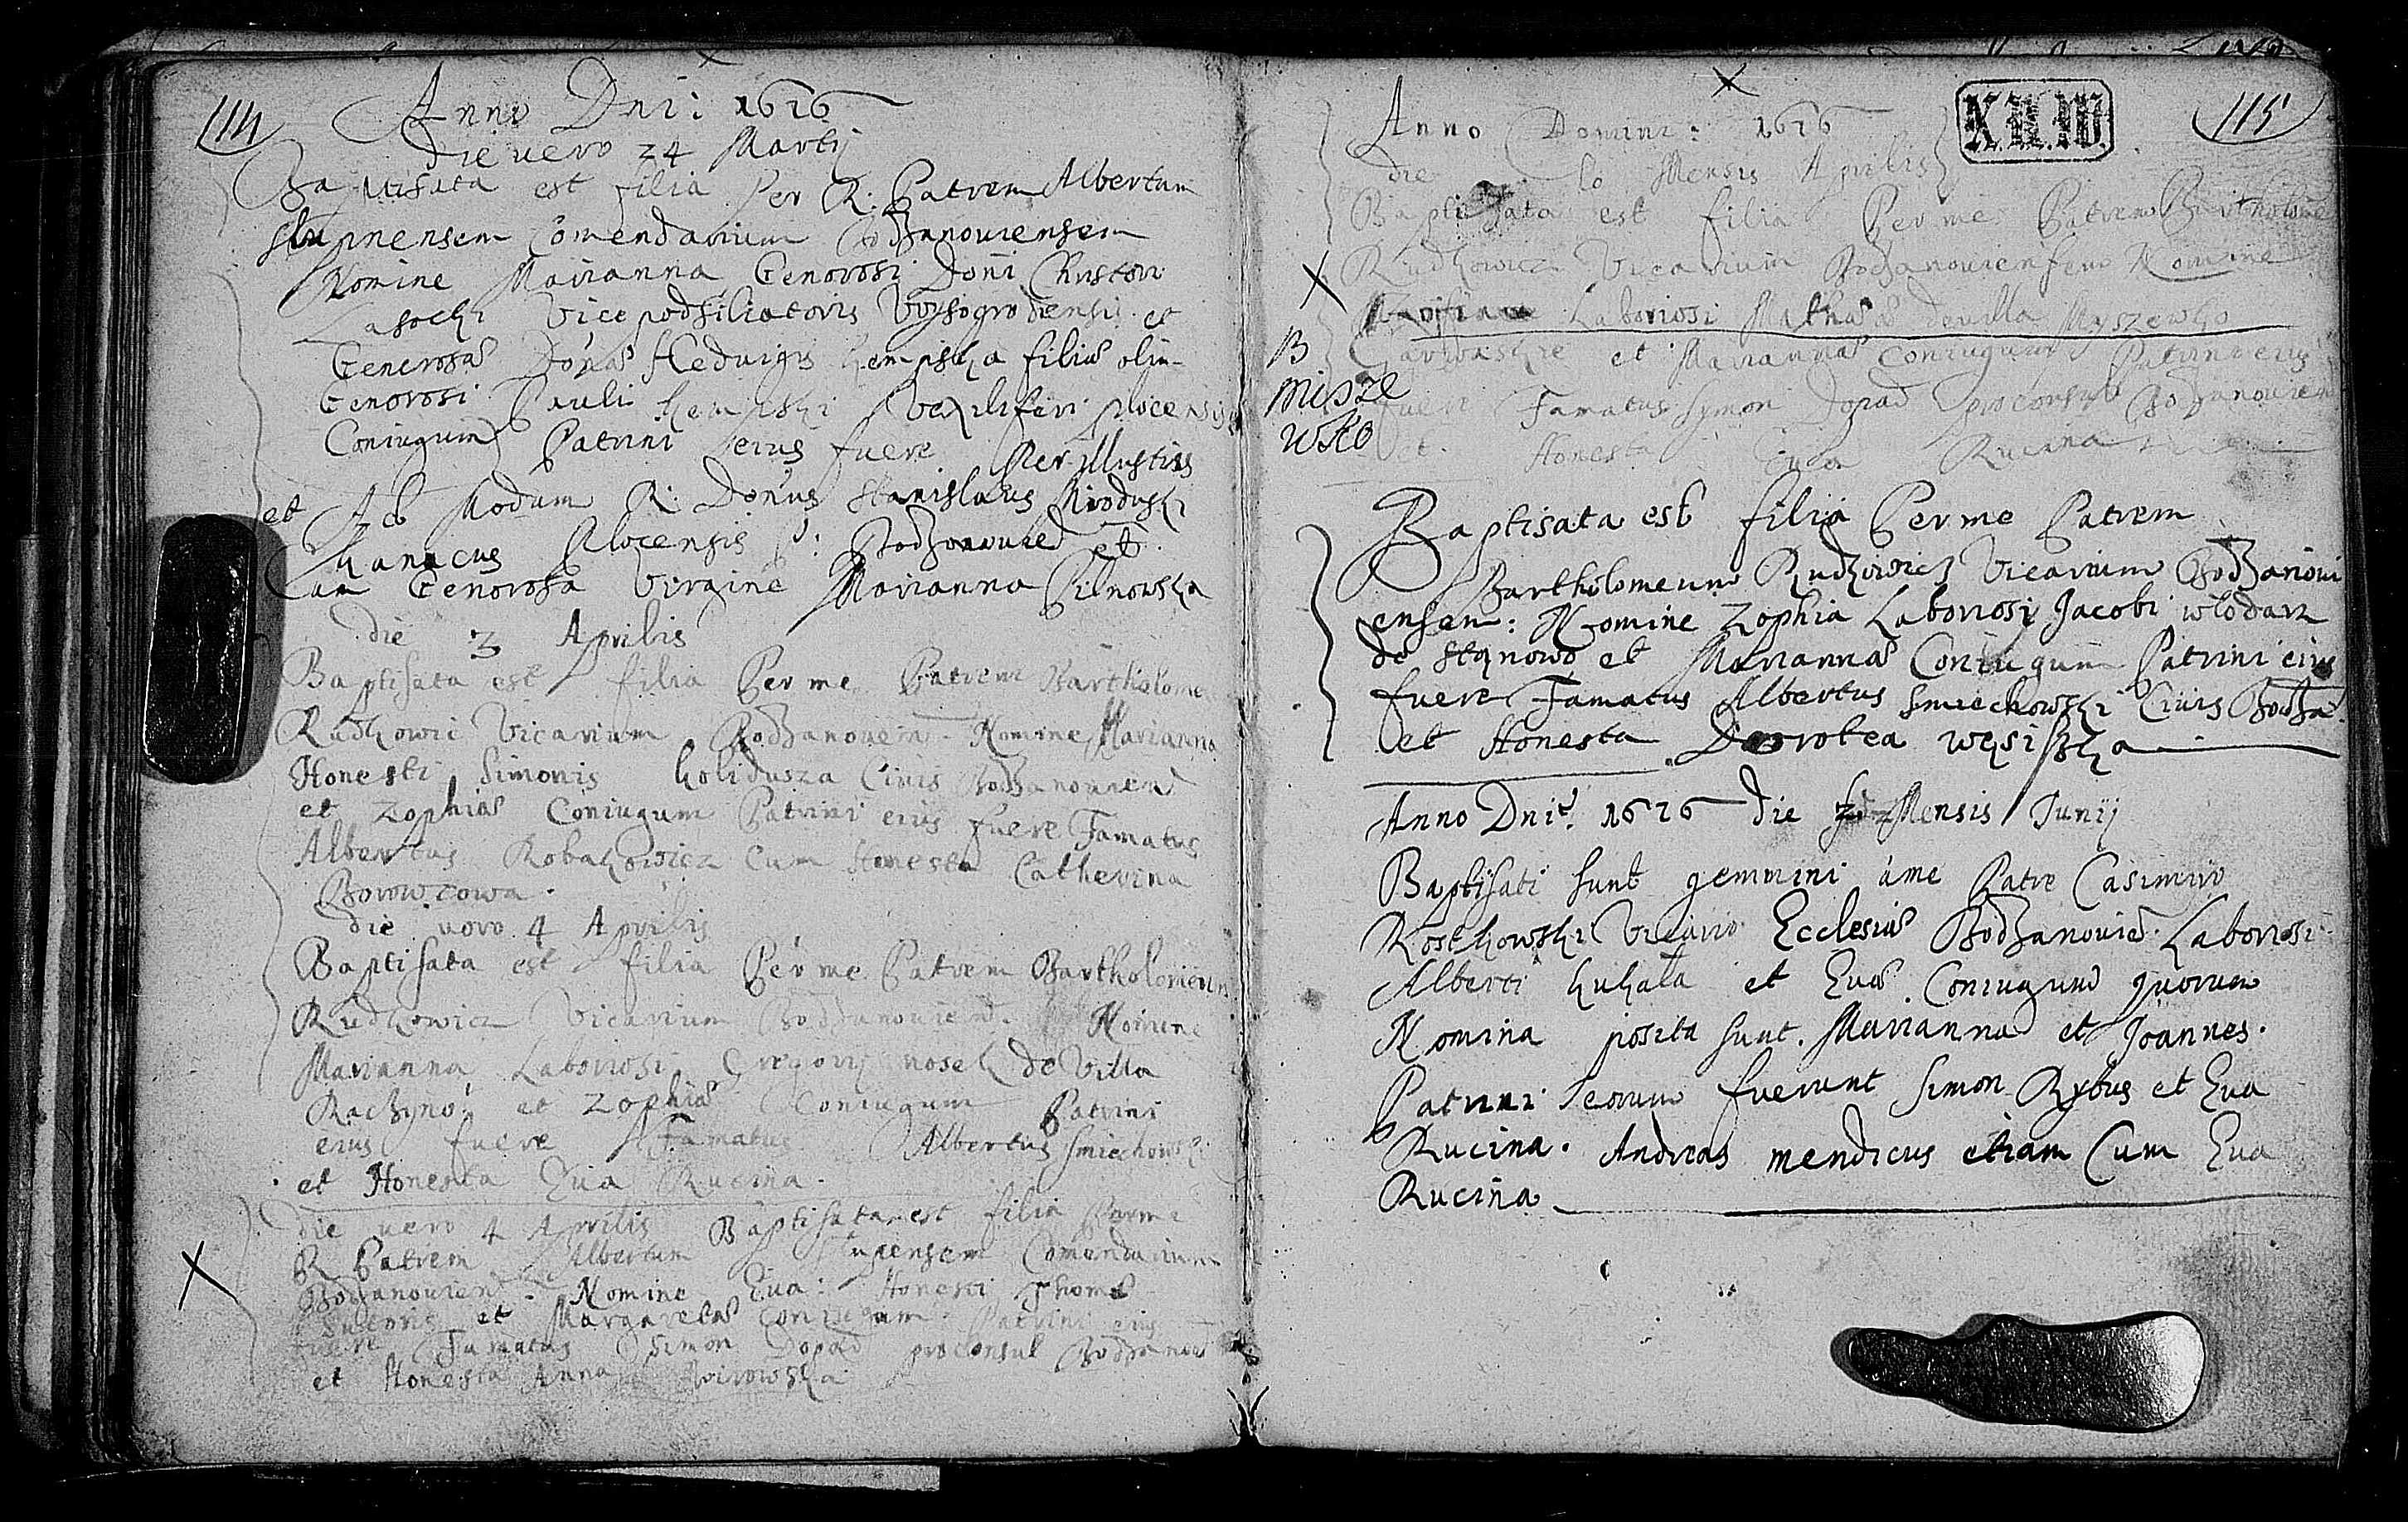 114
Anno Dni: 1676
die vero 24 Martij
Baptisata est filia Per R. Patrem Albertum
Slupnensem Comendarium Bodzanouiensem
Nomine Marianna Generosi Doni Christori
Lasocki Vice podsiliatoris Vysogrodiensis et
Generosae Donae Heduigis Kempska filiae olim
Generosi Pauli Kempski Vexiliferi plocensis
Coniugum Patrini eius fuere Per Illustris
et Ad Modum R: Donus Stanislaus
Canacus Plocensis P: Bodzanouied et
Cum Generosa Virgine Marianna Pilnowska
die 3 Aprilis
Baptisata est filia Per me Patrem Bartholome
Rudkowic Vicarium Bodzanouien Nomine Marianna
Honesti Simonis Kolidusza Ciuis Bodzanouien
et Zophiae Coniugum Patrini eius fuere Famatus
Albertus Robakowicz Cum Honesta Catherina
Borowcowa.
die vero 4 Aprilis
Baptisata est filia Per me Patrem Bartholomeum
Rudkowicz Vicarium Bodzanouien Nomine
Marianna Laboriosi Gregorij nosek de Villa
Rackyno et Zophiae Coniugum Patrini
eius fuere Famatus Albertus Smiechowski
et Honesta Eua Rucina.
die vero 4 Aprilis Baptisata est filia Per me
R Patrem Albertum Comendarium
Bodzanouien Nomine Eua: Honesti Thomae
Sutoris et Margaretae coniugum Patrini eius
fuere Famatus Simon Dopad proconsul Bodzanoui
et Honesta Anna
115
Anno Domini: 1676
die 10 Mensis Aprilis
Baptisata est filia Per me Patrem Bartholome
Rudkowicz Vicarium Bodzanouiensem Nomine
Laboriosi Mathiae de villa Myszewko
B
misze
wko
et Mariannae Coniugum Patrini eius
fuere Famatus Symon Dopad proconsul Bodzanouien
et Honesta Rucina
Baptisata est filia Per me Patrem
Bartholomeum Rudkowicz Vicarium Bodzanoui
ensem: Nomine Zophia Laboriosi Jacobi wlodarz
de Stanowo et Mariannae Coniugum Patrini eius
fuere Famatus Albertus Smiechowski Ciuis Bodza
et Honesta Dorotea
Anno Dni. 1676 die Mensis Junij
Baptisati sunt gemmini a me Patre Casimiro
Kostkowski Vicario Ecclesiae Bodzanouien. Laboriosi
Alberti Kukala et Euae Coniugum quorum
Nomina posita sunt. Marianna et Joannes.
Patrini eorum fuerunt Simon Rybus et Eua
Rucina. Andreas mendicus etiam Cum Eua
Rucina